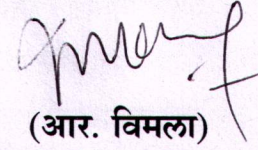 (आर. विमला)